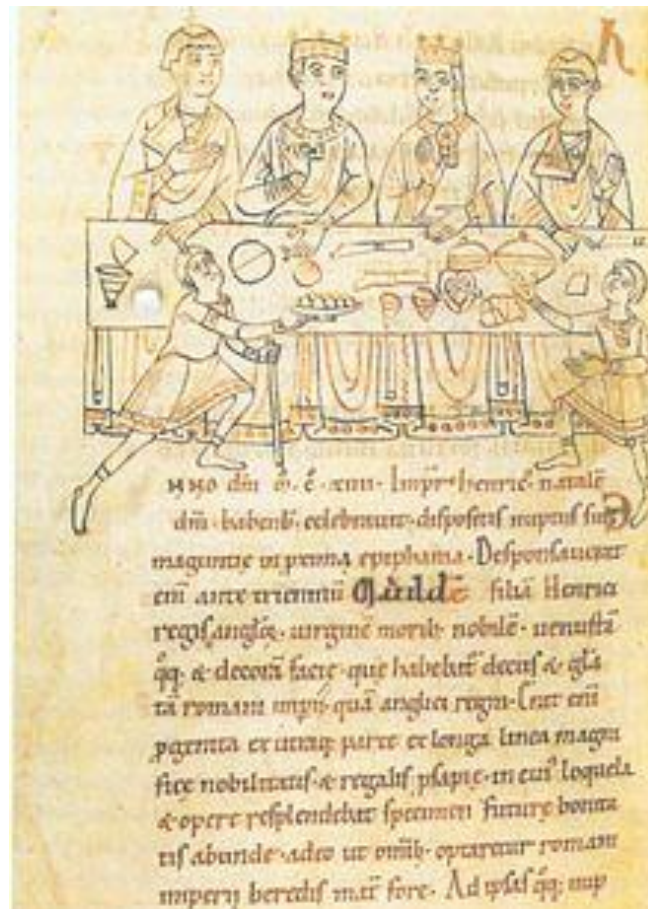 NNO dm̄ ṁ. c̄. xiiii. Impr̄ henric̄. natalē
dm̄. babenb̄. celebrauit. dispositis nuptiis suis
maguntie in prima epiphania. Desponsauerat
eni ante trienniū Mathildē filiā Henrici
regis angloꝝ. uirginē morib; nobilē. uenustā
qq. & decorā facie. que habebat᷑ decus & glā
tā romani imp̄ii quā anglici regni. Erat eni
ꝓgenita ex utraq; parte ex longa linea magni
fice nobilitatis. & regalis ꝓsapie. in cui᷒ loquela
& opere resplendebat specimen future bonita
tis abunde. adeo ut omib; optaretur romani
imperii heredis mat̄ fore. Ad ipsas qq; nup